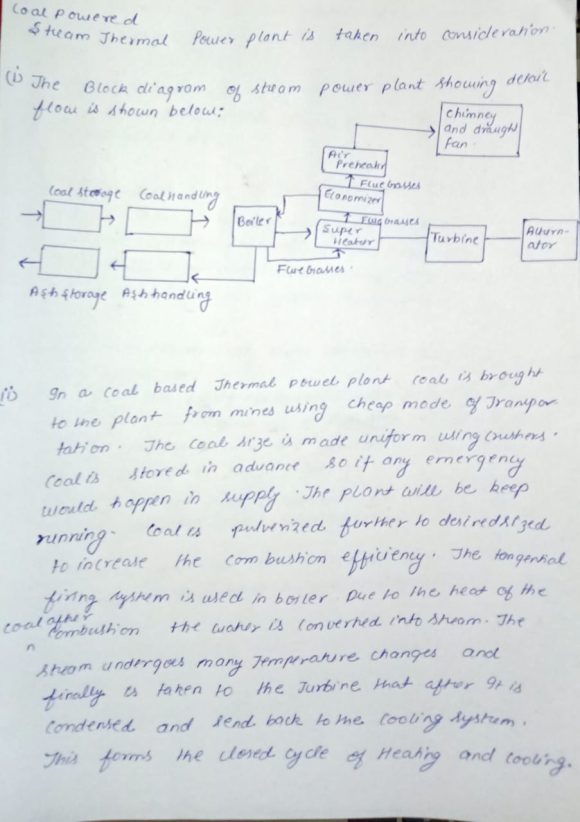 Coal powered
Steam Thermal Power plant is taken into consideration.
(i) The Block diagram of steam power plant showing detail
flow is shown below:
Chimney
and draught
fan.
Air
Preheater
Flue Gasses
Economizer
Flue Gasses
Coal Storage
Coal Handling
Boiler
Super
Heater
Turbine
Altern-
ator
Flue Gasses.
Ash storage
Ash handling
(ii) In a coal based Thermal power plant coal is brought
to the plant from mines using cheap mode of Transpor
tation. The coal size is made uniform using crushers.
Coal is stored in advance so if any emergency
would happen in supply. The plant will be keep
running. Coal is pulverized further to desired sized
to increase the combustion efficiency. The tangential
firing system is used in boiler. Due to the heat of the
coal after
combustion the water is converted into steam. The
steam undergoes many Temperature changes and
finally is taken to the Turbine that after It is
condensed and send back to the cooling system.
This forms the closed cycle of Heating and cooling.